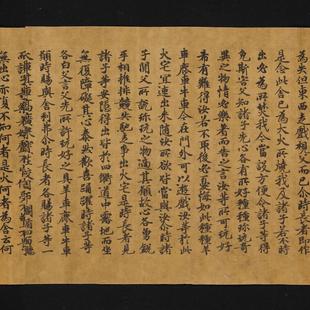 為失但東西走戲視父而已爾時長者即作
是念此舍已為大火所燒我及諸子若不時
出必為所焚我今當設方便令諸子等得
免斯害父知諸子先心各有所好種種珍玩奇
異之物情必樂著而告之言汝等所可玩好
希有難得汝若不取後必憂悔如此種種羊
車鹿車牛車今在門外可以遊戲汝等於此
火宅宜速出來隨汝所欲皆當與汝爾時諸
子聞父所說珍玩之物適其願故心各勇銳
互相推排競共馳走爭出火宅是時長者見
諸子等安隱得出皆於四衢道中露地而坐
無復障礙其心泰然歡喜踊躍時諸子等
各白父言父先所許玩好之具羊車鹿車牛車
願時賜與舍利弗爾時長者各賜諸子等一
無出心亦復不知何者是火何者為舍云何